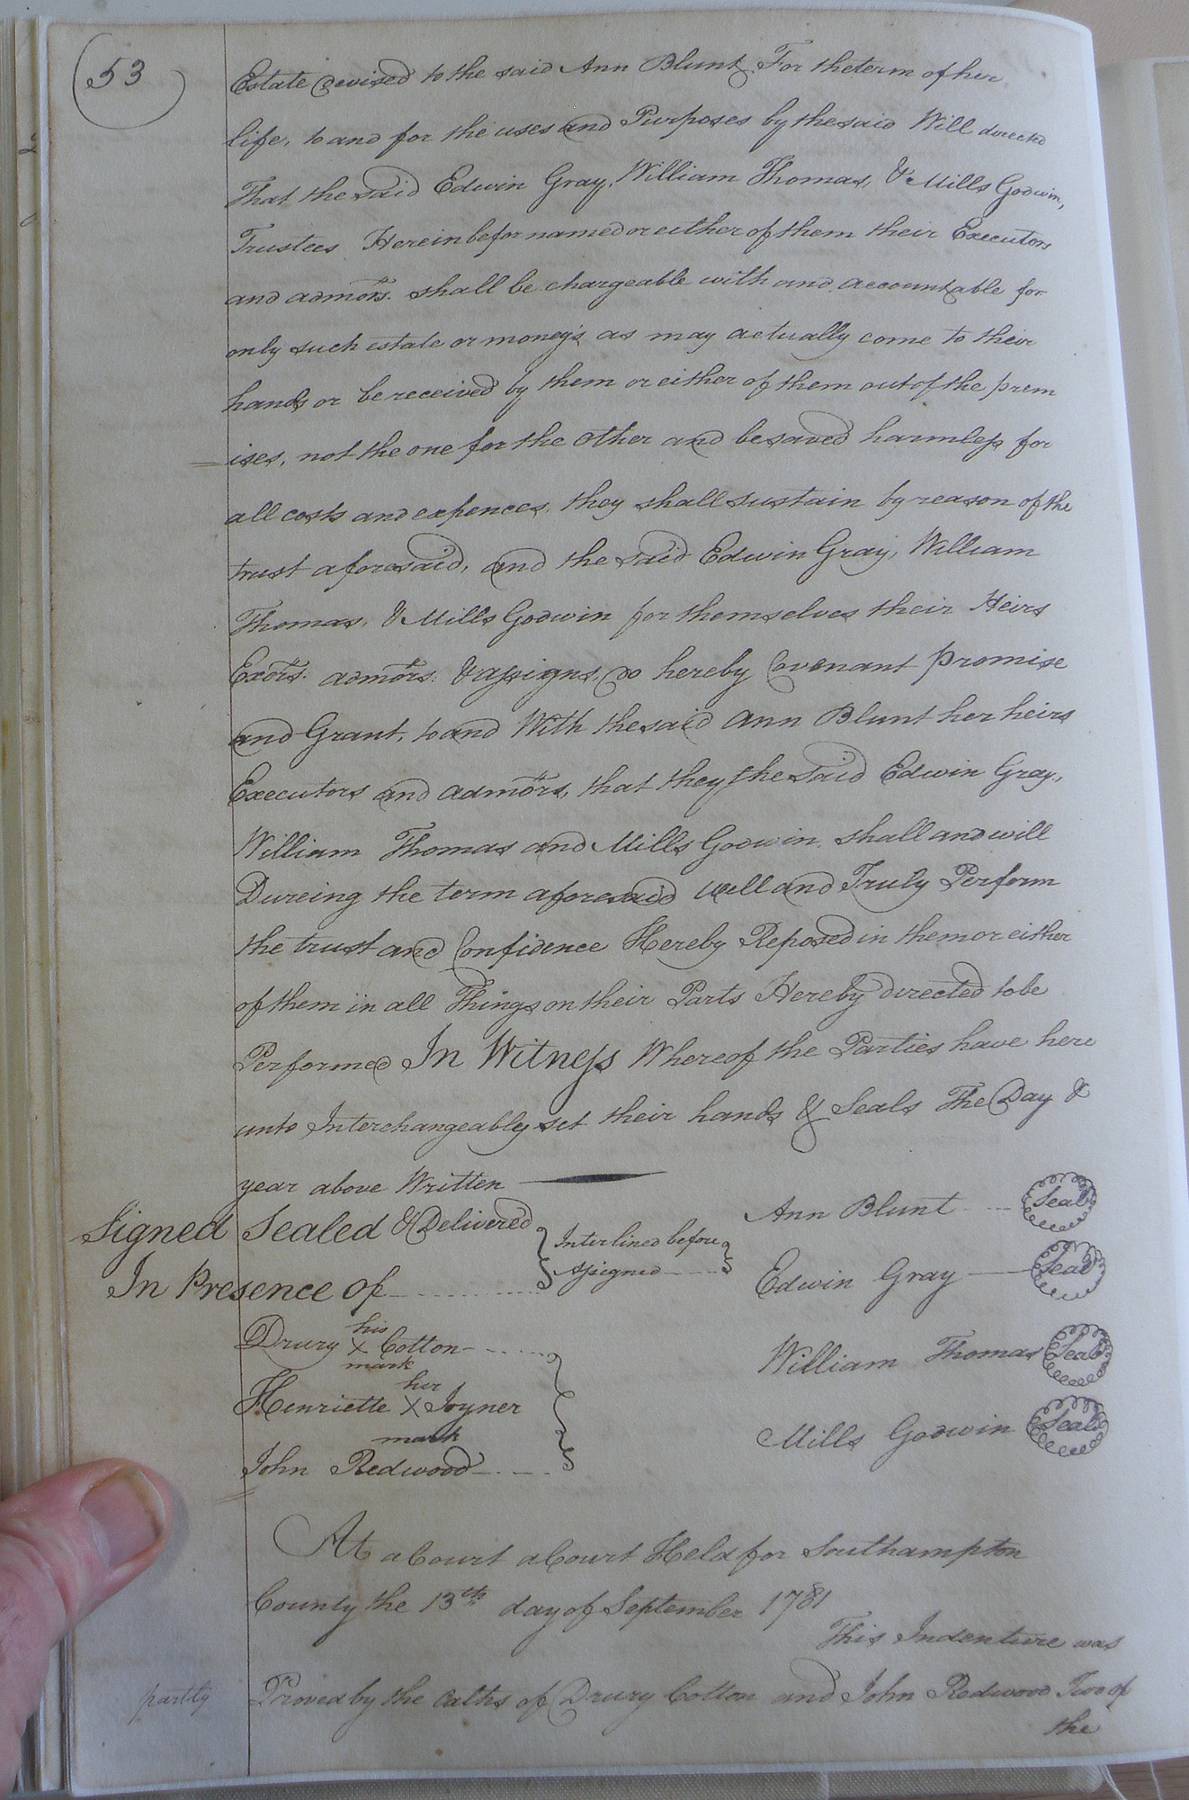 53
Estate devised to the said Ann Blunt, For the term of her
life, to and for the uses and Purposes by the said Will directed
That the said Edwin Gray, William Thomas, & Mills Godwin,
Trustees Hereinbefor named or either of them their Executors
and admors. shall be chargeable with and accountable for
only such estate or money's as may actually come to their
hands or be received by them or either of them out of the prem
ises, not the one for the other and be saved harmless for
all costs and expences, they shall sustain by reason of the
trust aforesaid, and the said Edwin Gray, William
Thomas, & Mills Godwin for themselves their Heirs
Exors. admors. & assigns, do hereby Covenant promise
and Grant, to and With the said Ann Blunt her heirs
Executors and admors, that they the said Edwin Gray,
William Thomas and Mills Godwin shall and will
Dureing the term aforesaid well and Truly Perform
the trust and Confidence Hereby Reposed in them or either
of them in all Things on their Parts Hereby directed to be
Performed In Witness Whereof the Parties have here
unto Interchangeably set their hands & Seals The Day &
year above Written
Signed Sealed & Delivered
In Presence of
Interlined before
assigned
Ann Blunt Seal
Edwin Gray Seal
William Thomas Seal
Mills Godwin Seal
his
Drury X Cotton
mark
her
Henriette X Joyner
mark
John Redwood
At a Court a Court Held for Southampton
County the 13th day of September 1781
This Indenture was
partly Proved by the oaths of Drury Cotton and John Redwood Two of
the